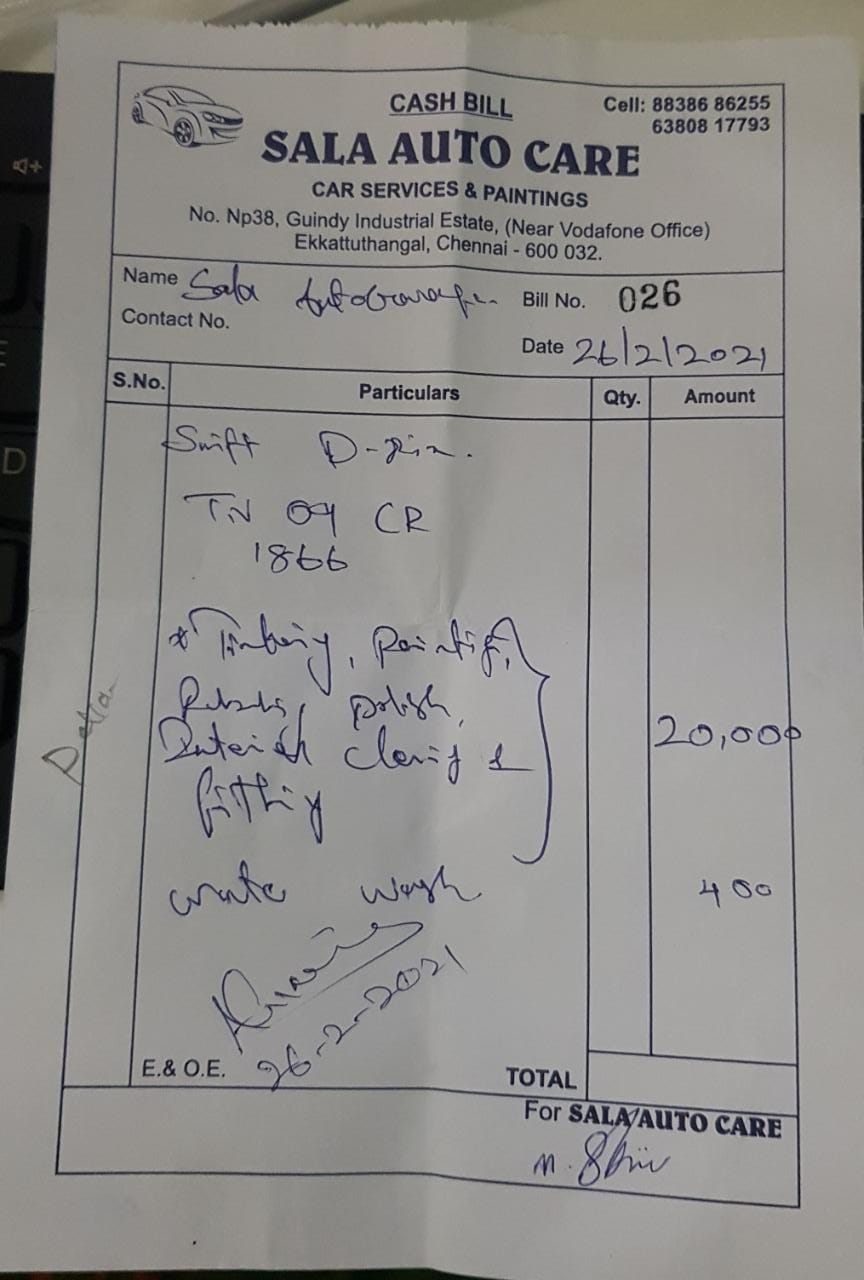 CASH BILL
Cell: 88386 86255
63808 17793
SALA AUTO CARE
CAR SERVICES & PAINTINGS
No. Np38, Guindy Industrial Estate, (Near Vodafone Office)
Ekkattuthangal, Chennai - 600 032.
Name Sala
Bill No. 026
Contact No.
Date 26/2/2021
S.No. Particulars Qty. Amount
Swift
TN 09 CR
1866
polish,
20,000
fitting
wash 400
26-2-2021
E.& O.E. TOTAL
For SALA AUTO CARE